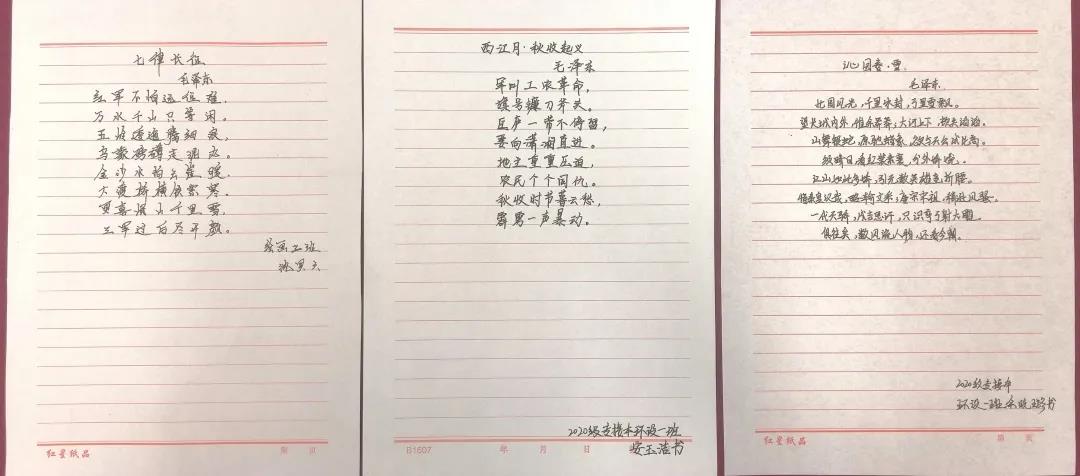 七律长征
毛泽东
红军不怕远征难,
万水千山只等闲。
五岭逶迤腾细浪,
乌蒙磅礴走泥丸。
金沙水拍云崖暖,
大渡桥横铁索寒。
更喜岷山千里雪,
三军过后尽开颜。
绘画二班
红星纸品
第 页
西江月·秋收起义
毛泽东
军叫工农革命,
旗号镰刀斧头。
匡庐一带不停留,
要向潇湘直进。
地主重重压迫,
农民个个同仇。
秋收时节暮云愁,
霹雳一声暴动。
2020级专接本环设一班
安玉洁书
B1607
年 月 日
沁园春·雪
毛泽东
北国风光,千里冰封,万里雪飘。
望长城内外,惟余莽莽;大河上下,顿失滔滔。
山舞银蛇,原驰蜡象,欲与天公试比高。
须晴日,看红装素裹,分外妖娆。
江山如此多娇,引无数英雄竞折腰。
惜秦皇汉武,略输文采;唐宗宋祖,稍逊风骚。
一代天骄,成吉思汗,只识弯弓射大雕。
俱往矣,数风流人物,还看今朝。
2020级专接本
环设一班
红星纸品
第 页